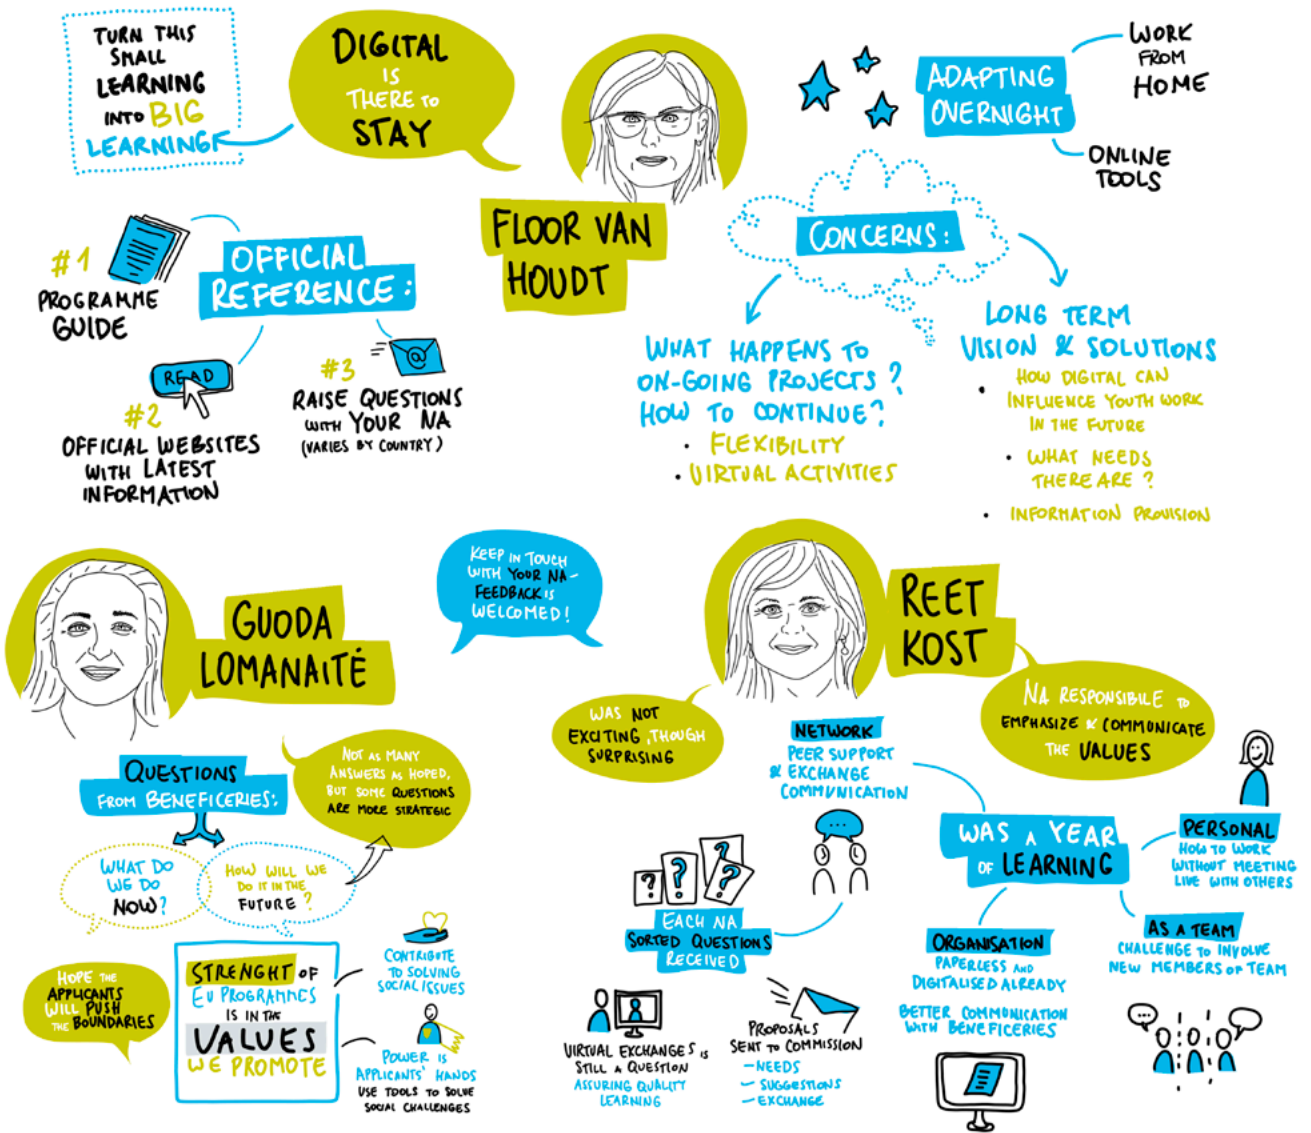 TURN THIS
SMALL
LEARNING
INTO BIG
LEARNING
DIGITAL
IS
THERE TO
STAY
FLOOR VAN
HOUDT
ADAPTING
OVERNIGHT
WORK
FROM
HOME
ONLINE
TOOLS
OFFICIAL
REFERENCE:
#1
PROGRAMME
GUIDE
READ
#2
OFFICIAL WEBSITES
WITH LATEST
INFORMATION
#3
RAISE QUESTIONS
WITH YOUR NA
(VARIES BY COUNTRY)
@
CONCERNS:
WHAT HAPPENS TO
ON-GOING PROJECTS?
HOW TO CONTINUE?
• FLEXIBILITY
• VIRTUAL ACTIVITIES
LONG TERM
VISION & SOLUTIONS
• HOW DIGITAL CAN
INFLUENCE YOUTH WORK
IN THE FUTURE
• WHAT NEEDS
THERE ARE?
• INFORMATION PROVISION
KEEP IN TOUCH
WITH YOUR NA-
FEEDBACK IS
WELCOMED!
GUODA
LOMANAITĖ
QUESTIONS
FROM BENEFICERIES:
NOT AS MANY
ANSWERS AS HOPED,
BUT SOME QUESTIONS
ARE MORE STRATEGIC
WHAT DO
WE DO
NOW?
HOW WILL WE
DO IT IN THE
FUTURE?
HOPE THE
APPLICANTS
WILL PUSH
THE BOUNDARIES
STRENGHT OF
EU PROGRAMMES
IS IN THE
VALUES
WE PROMOTE
CONTRIBUTE
TO SOLVING
SOCIAL ISSUES
POWER IS
APPLICANTS' HANDS
USE TOOLS TO SOLVE
SOCIAL CHALLENGES
REET
KOST
WAS NOT
EXCITING, THOUGH
SURPRISING
NA RESPONSIBILE TO
EMPHASIZE & COMMUNICATE
THE VALUES
NETWORK
PEER SUPPORT
& EXCHANGE
COMMUNICATION
...
WAS A YEAR
OF LEARNING
PERSONAL
HOW TO WORK
WITHOUT MEETING
LIVE WITH OTHERS
AS A TEAM
CHALLENGE TO INVOLVE
NEW MEMBERS OF TEAM
...
ORGANISATION
PAPERLESS AND
DIGITALISED ALREADY
BETTER COMMUNICATION
WITH BENEFICERIES
? ? ? ?
EACH NA
SORTED QUESTIONS
RECEIVED
VIRTUAL EXCHANGES IS
STILL A QUESTION
ASSURING QUALITY
LEARNING
PROPOSALS
SENT TO COMMISSION
– NEEDS
– SUGGESTIONS
– EXCHANGE